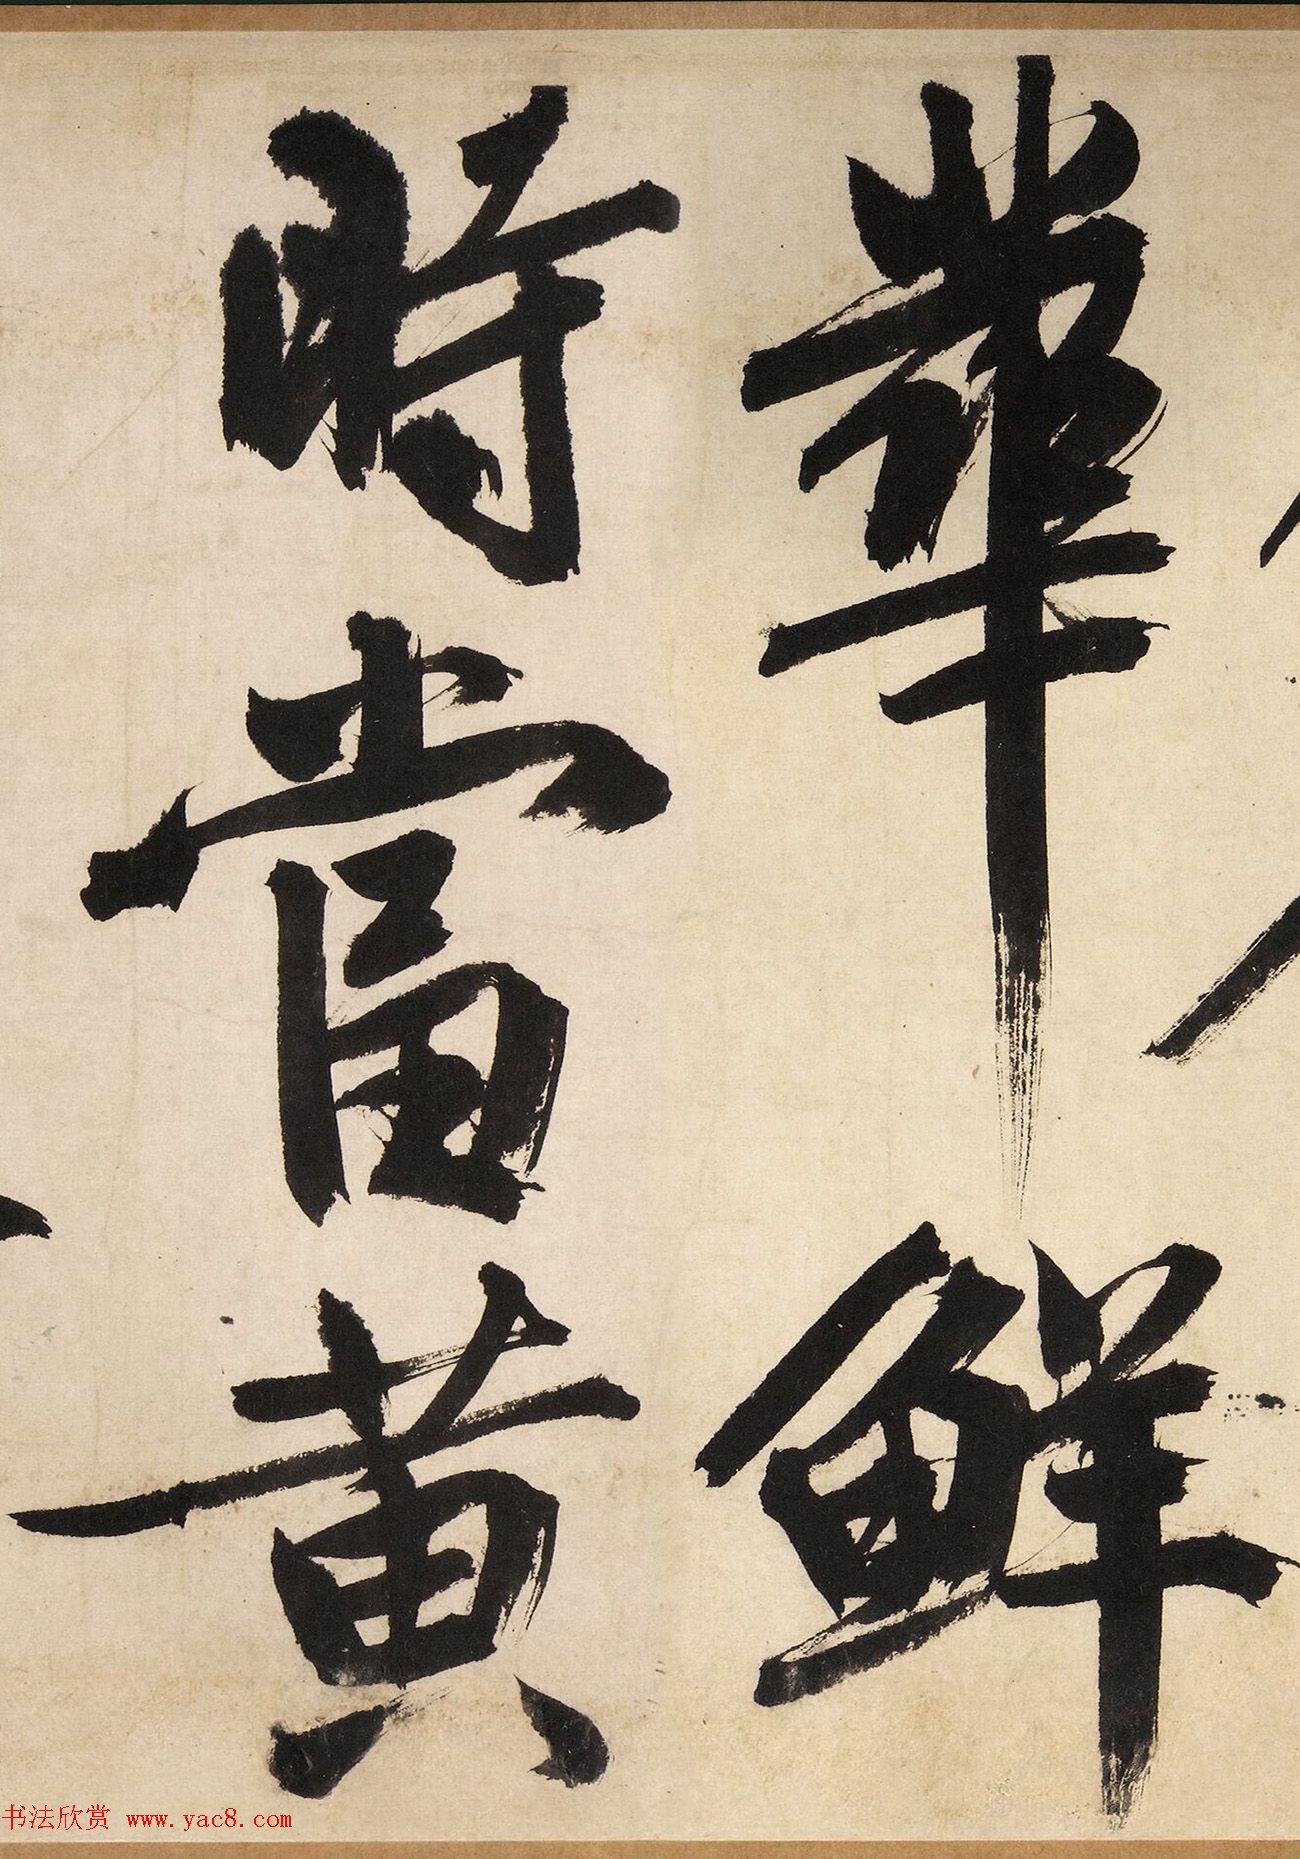 華鮮
時當黃
书法欣赏 www.yac8.com